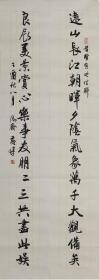 遠山長江朝暉夕蔭氣象萬千大觀備矣
良辰美景賞心樂事友朋二三共盡此娛